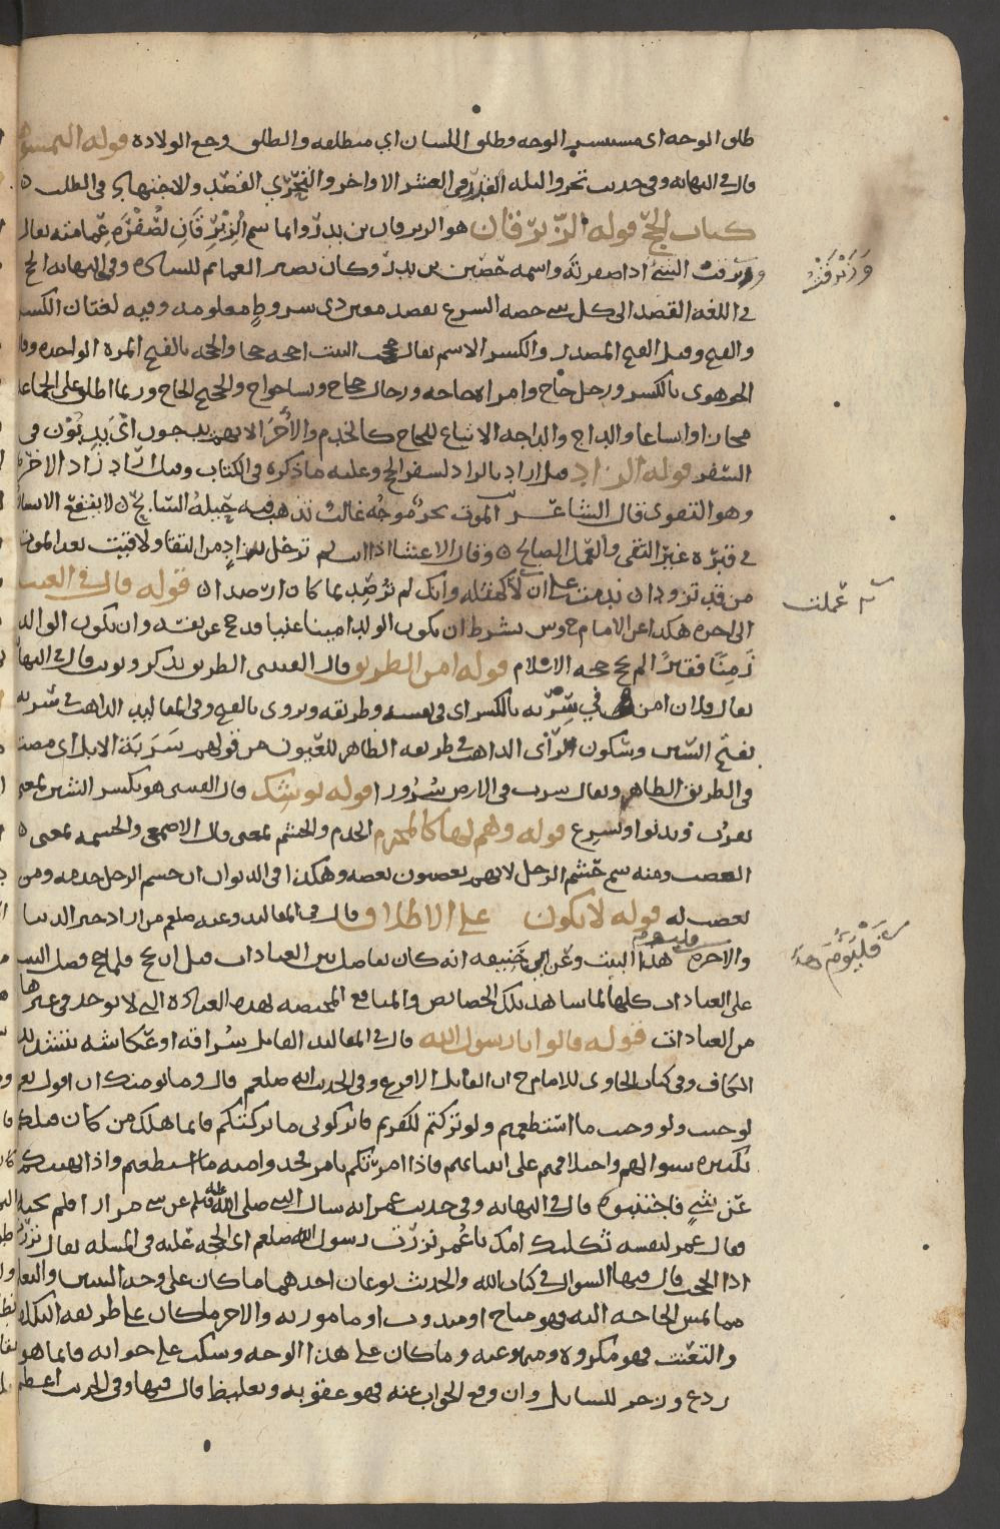 طلق الوجه اي مستبشر الوجه وطلق اللسان اي منطلقه والطلق وجع الولادة قوله التمسوا
قال في النهاية وفي حديث تحروا ليلة القدر في العشر الاواخر والتحري القصد والاجتهاد في الطلب
كتاب الحج قوله الزبرقان هو الزبرقان بن بدر وانما سمي الزبرقان لصفرة عمامته يقال
وزبرقت الشيء اذا صفرته واسمه حصين بن بدر وكان يصبر العمائم للسادة وفي النهاية الحج
وزبرقت
في اللغة القصد الى كل شيء خصه الشرع بقصد معين ذي شروط معلومة وفيه لغتان الكسر
والفتح وقيل الفتح المصدر والكسر الاسم يقال حججت البيت احجه حجا والحجة بالفتح المرة الواحدة
الجوهري بالكسر ورجل حاج وامراة حاجة ورجال حجاج ونساء حواج والحجيج الحاج وربما اطلق على الجماعة
مجازا واتساعا والداج والداجة الاتباع للحاج كالخدم والاجراء لانهم يدجون اي يدبون في
السفر قوله الزاد قيل اراد بالزاد لسفر الحج وعليه ما ذكره في الكتاب وقيل اراد زاد الاخرة
وهو التقوى قال الشاعر الموت بحر موجه غالب تذهب فيه حيلة السابح لا ينفع الانسان
في قبره غير التقى والعمل الصالح وقال الاعشى اذا انت لم ترحل بزاد من التقا ولاقيت بعد الموت
من قد تزودا ندمت على ان لا تكون كمثله وانك لم ترصد بما كان ارصدا قوله قال في
عملت
الى اخره هكذا عن الامام بشرط ان يكون الولد امينا غنيا قد حج عن نفسه وان يكون الوالد
زمنا فقيرا لم يحج حجة الاسلام قوله امن الطريق قال العيسى الطريق يذكر ويونث قال في النهاية
يقال فلان امن في سربه بالكسر اي في نفسه وطريقه ويروى بالفتح وفي المقاليد الذاهب في سربه
بفتح السين وسكون الراء اي الذاهب في طريقه الظاهر للعيون من قولهم سربت الابل اي مضت
في الطريق الظاهر ويقال سرب في الارض سرورا قوله يوشك قال العيسى هو بكسر الشين بمعنى
يقرب ويدنوا ويسرع قوله وهم لها كالمحرم الخدم والحشم بمعنى وقال الاصمعي والحشمة بمعنى
الغضب ومنه سمي حشم الرجل لانهم يغضبون بغضبه وهكذا في الديوان ان حشم الرجل خدمه ومن
يغضب له قوله لا يكون على الاطلاق قال في المقاليد وعنه صلعم من اراد خير الدنيا
والاخرة فليؤم هذا البيت وعن ابي حنيفة انه كان يفاضل بين العبادات قبل ان يحج فلما حج فضل الحج
فليؤم هذا
على العبادات كلها لما شاهد تلك الخصائص والمنافع المختصة بهذه العبادة التي لا توجد في غيرها
من العبادات قوله قالوا يا رسول الله قال في المقاليد القائل سراقة او عكاشة
الكاف وفي كتاب الحاوي للامام ح ان القائل الاقرع وفي الحديث انه صلعم قال وما يومنك ان اقول نعم
لوجبت ولو وجبت ما استطعتم ولو تركتم لكفرتم فاتركوني ما تركتكم فانما هلك من كان قبلكم
بكثرة سوالهم واختلافهم على انبيائهم فاذا امرتكم بامر فخذوا منه ما استطعتم واذا نهيتكم
عن شيء فاجتنبوه قال في النهاية وفي حديث عمر انه سال النبي صلى الله عليه وسلم عن شيء مرارا فلم يجبه
فقال عمر لنفسه ثكلتك امك يا عمر نزرت رسول الله صلعم اي الححت عليه في المسئلة يقال نزرته
اذا الححت قال فيها السوال في كتاب الله والحديث نوعان احدهما ما كان على وجه التبيين والتعلم
مما تمس الحاجة اليه فهو مباح او مندوب او مامور به والاخر ما كان على طريقة التكلف
والتعنت فهو مكروه ومنهي عنه وما كان على هذا الوجه وسكت على جوابه فانما هو
ردع وزجر للسايل وان وقع الجواب عنه فهو عقوبة وتغليظ قال فيها وفي الحديث اعظم